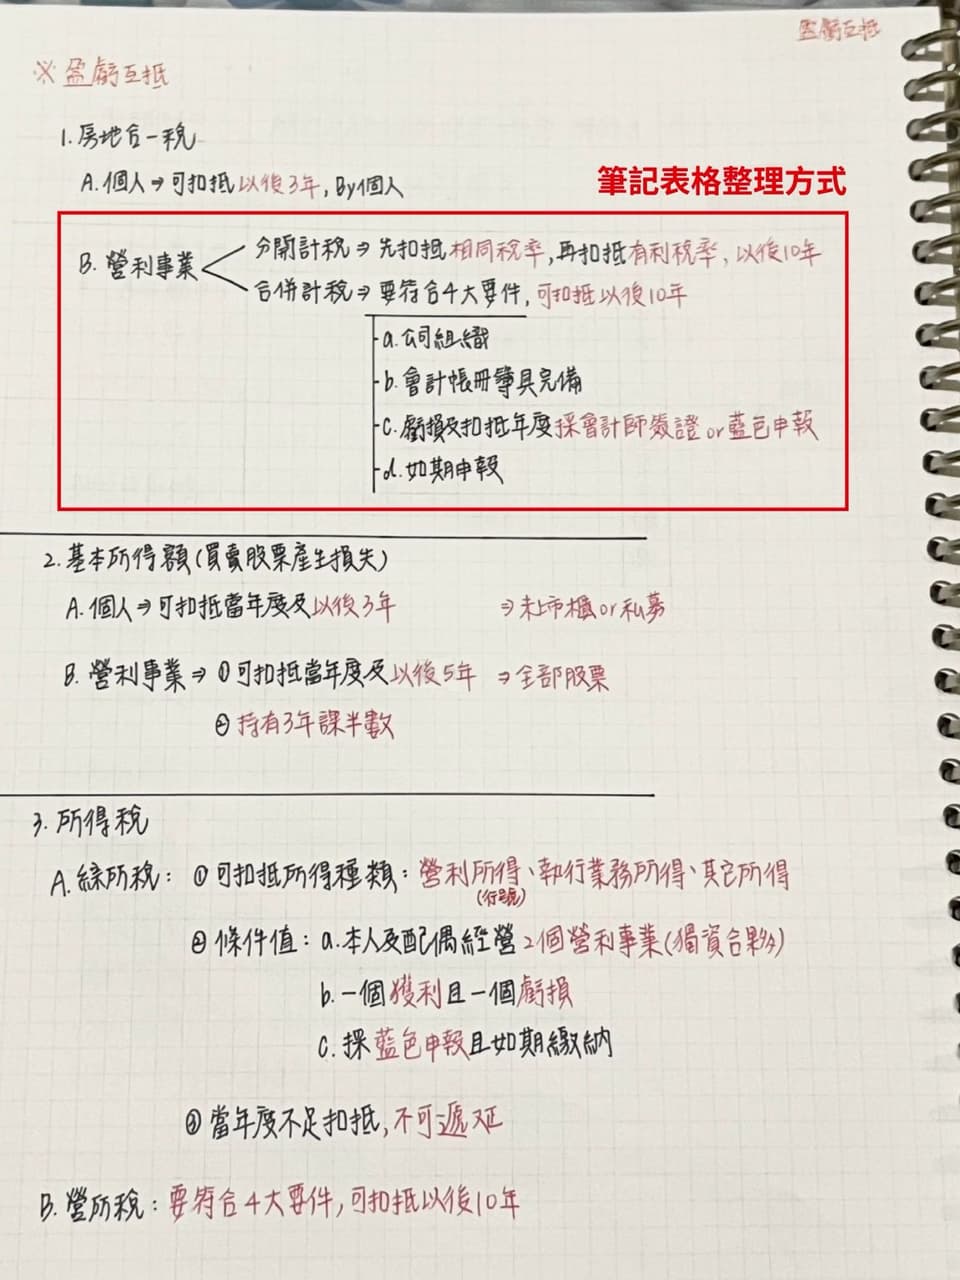 盈虧互抵
※盈虧互抵
1.房地合一稅
A.個人⇒可扣抵以後3年,By個人
筆記表格整理方式
B.營利事業
分開計稅⇒先扣抵相同稅率,再扣抵有利稅率,以後10年
合併計稅⇒要符合4大要件,可扣抵以後10年
a.公司組織
b.會計帳冊簿具完備
c.虧損及扣抵年度採會計師簽證or藍色申報
d.如期申報
2.基本所得額(買賣股票產生損失)
A.個人⇒可扣抵當年度及以後3年 ⇒未上市櫃or私募
B.營利事業⇒①可扣抵當年度及以後5年 ⇒全部股票
②持有3年課半數
3.所得稅
A.綜所稅:①可扣抵所得種類:營利所得、執行業務所得、其它所得
(行號)
②條件值:a.本人及配偶經營2個營利事業(獨資合夥)
b.一個獲利且一個虧損
c.採藍色申報且如期繳納
③當年度不足扣抵,不可遞延
B.營所稅:要符合4大要件,可扣抵以後10年